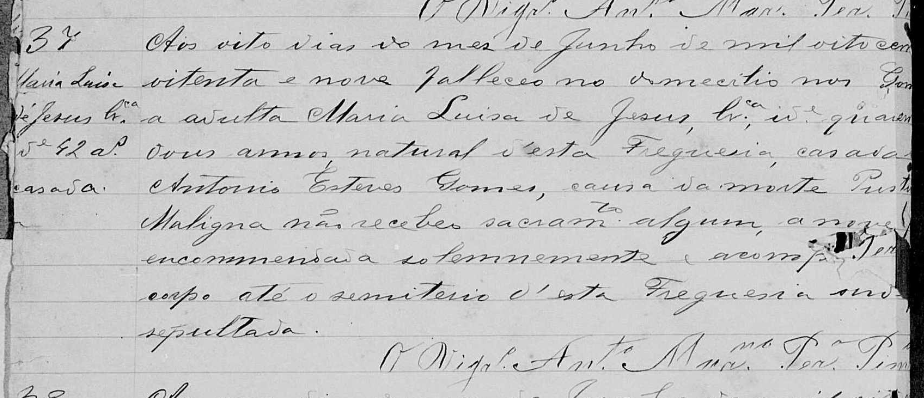 O Vigr.º Ant.º Mar. Per.
37
Aos oito dias do mez de Junho de mil oitocen
Maria Luisa
oitenta e nove falleceo no domecilio nos Gom
de Jesus br.ca
a adulta Maria Luisa de Jesus, br.ca, id.e quaren
d.e 42 a.s
dous annos, natural d'esta Freguesia, casada
casada.
Antonio Esteves Gomes, causa da morte Pust
Maligna não recebeo sacram.to algum, a
encommendada solemnemente e acomp
corpo até o semiterio d'esta Freguesia
sepultada.
O Vigr.º Ant.º Mar.no Per.a Pim